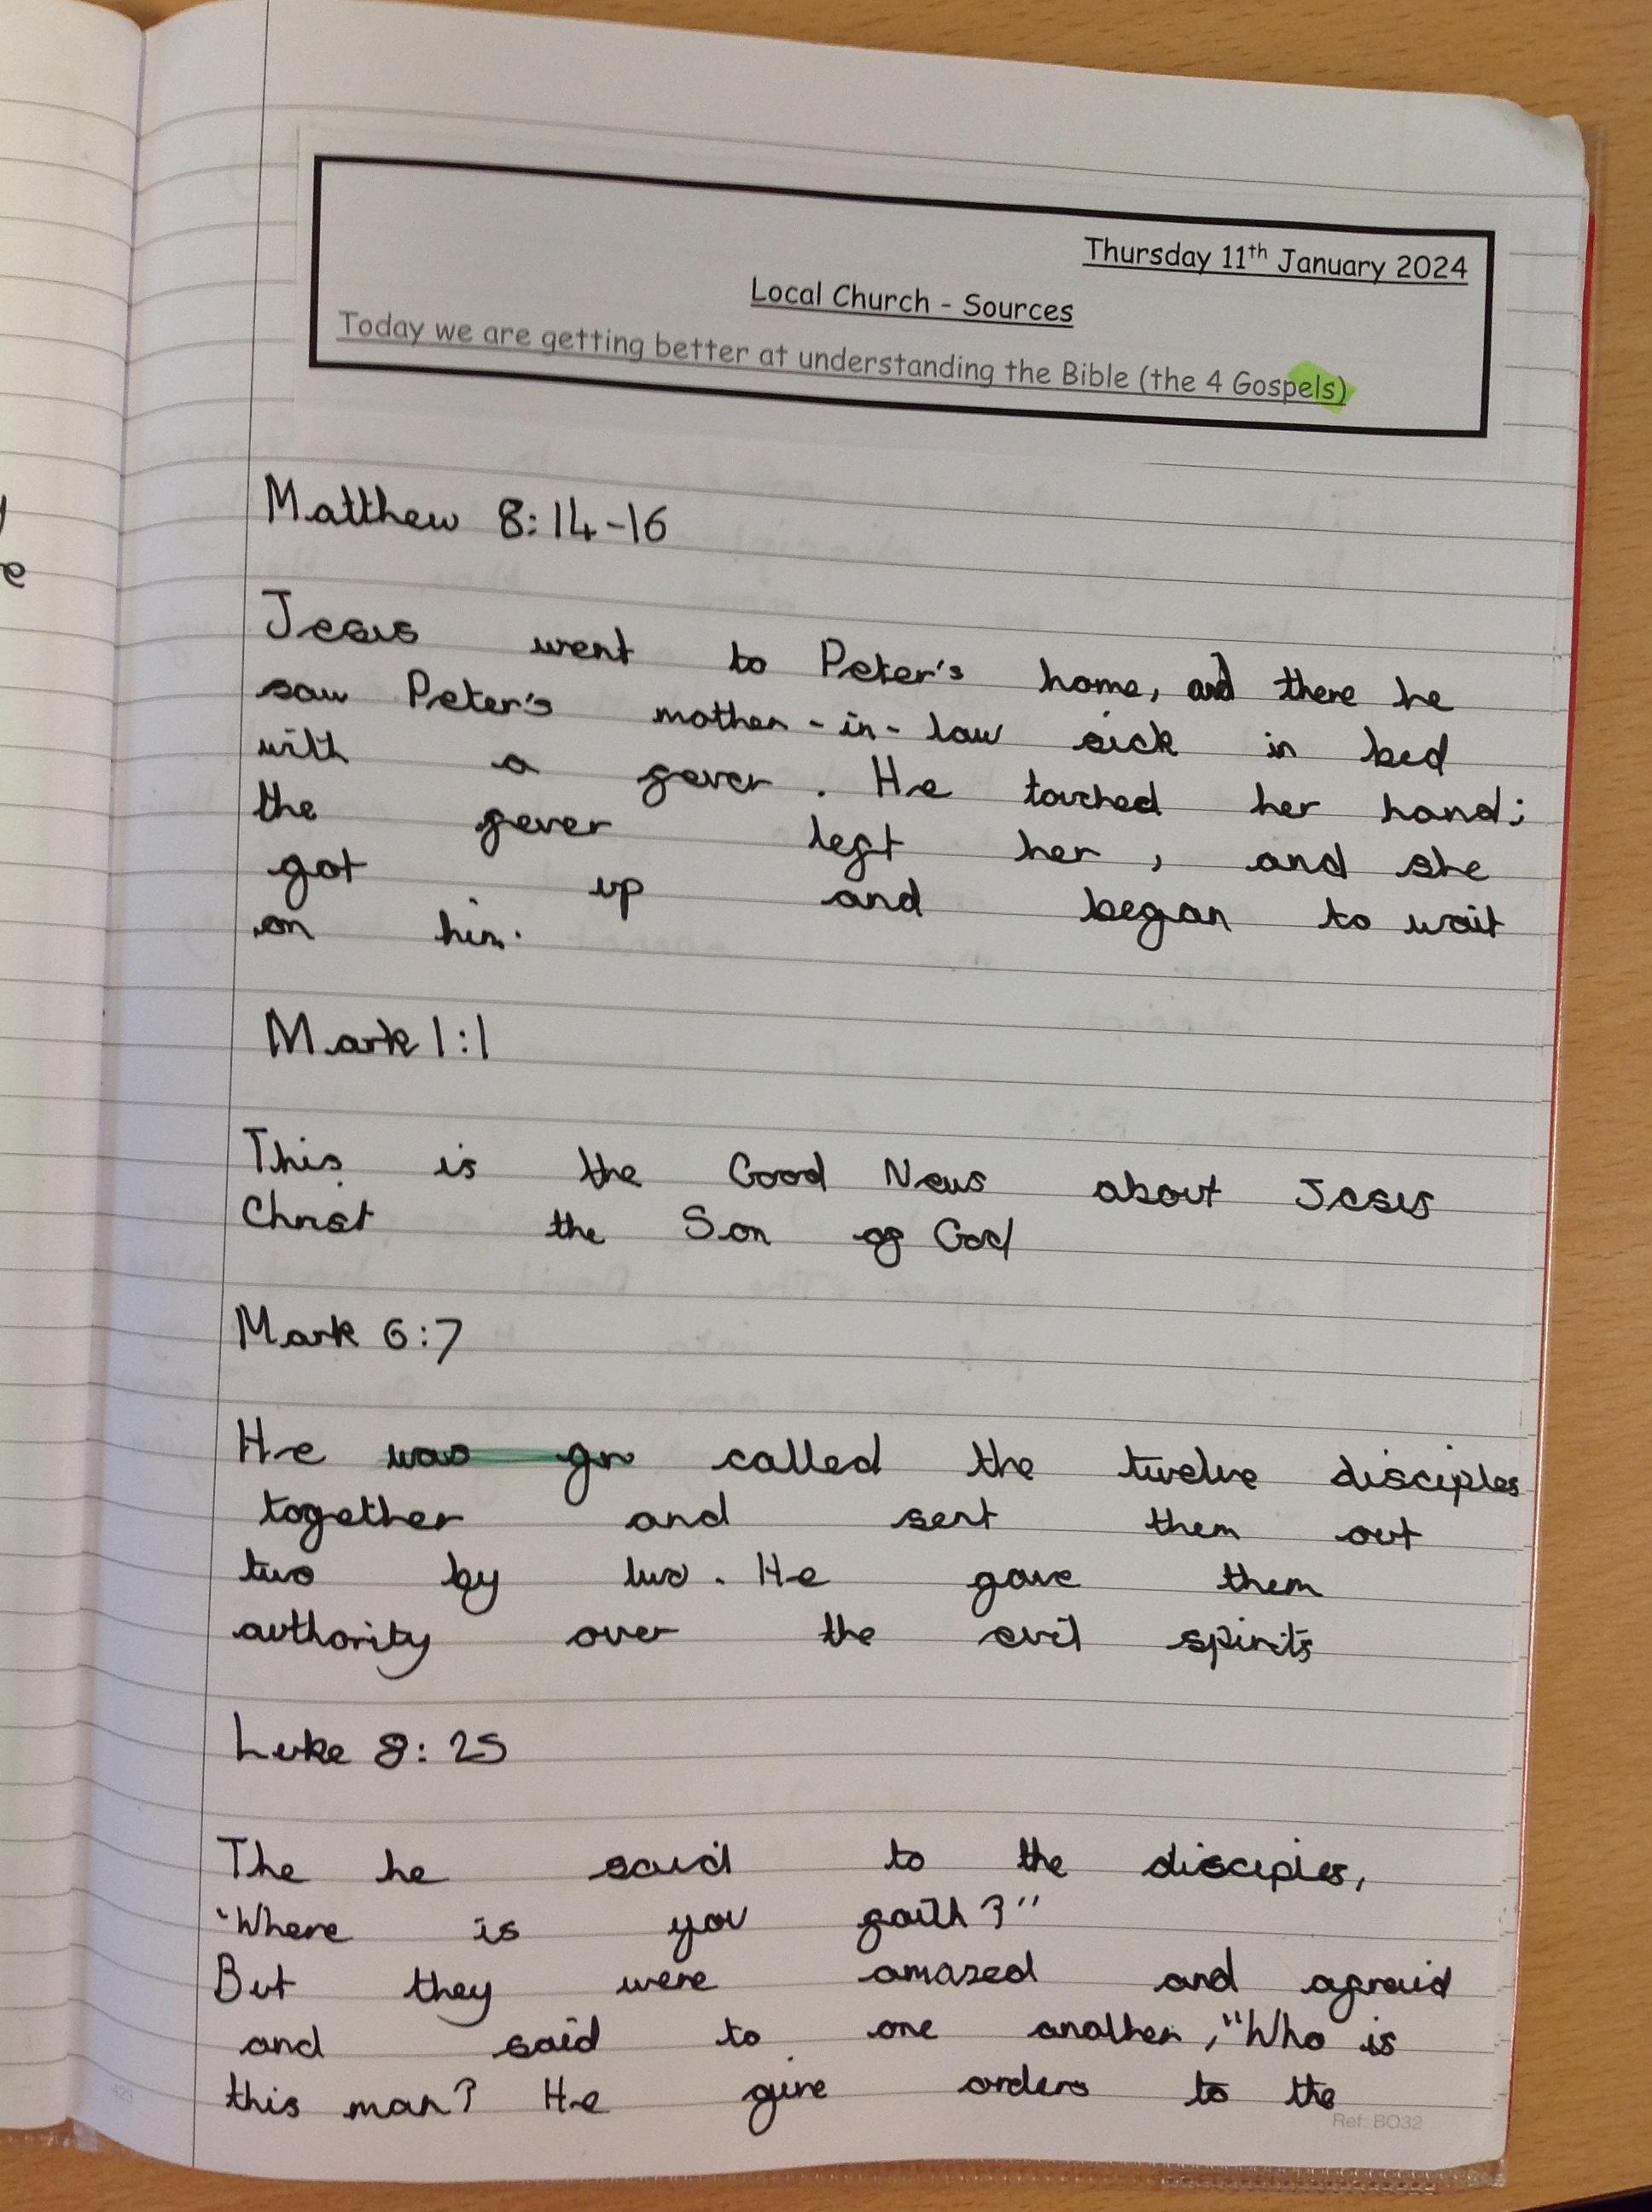 Thursday 11th January 2024
Local Church - Sources
Today we are getting better at understanding the Bible (the 4 Gospels)
Matthew 8:14-16
Jesus went to Peter's home, and there he
saw Peter's mother-in-law sick in bed
with a fever. He touched her hand;
the fever left her, and she
got up and began to wait
on him.
Mark 1:1
This is the Good News about Jesus
Christ the Son of God
Mark 6:7
He was gr called the twelve disciples
together and sent them out
two by two. He gave them
authority over the evil spirits
Luke 8:25
The he said to the disciples,
"Where is you faith?"
But they were amazed and afraid
and said to one another, "Who is
this man? He give orders to the
423
Ref: BO32
y
e